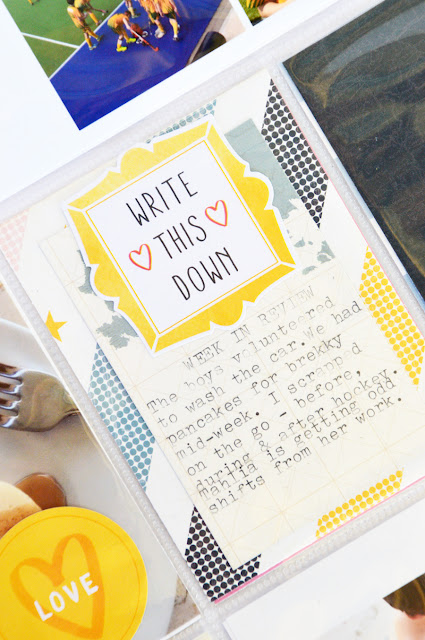 WRITE
THIS
DOWN
WEEK IN REVIEW
The boys volunteered
to wash the car. We had
pancakes for brekky
mid-week. I scrapped
on the go - before,
during & after hockey.
Mahlia is getting odd
shifts from her work.
LOVE